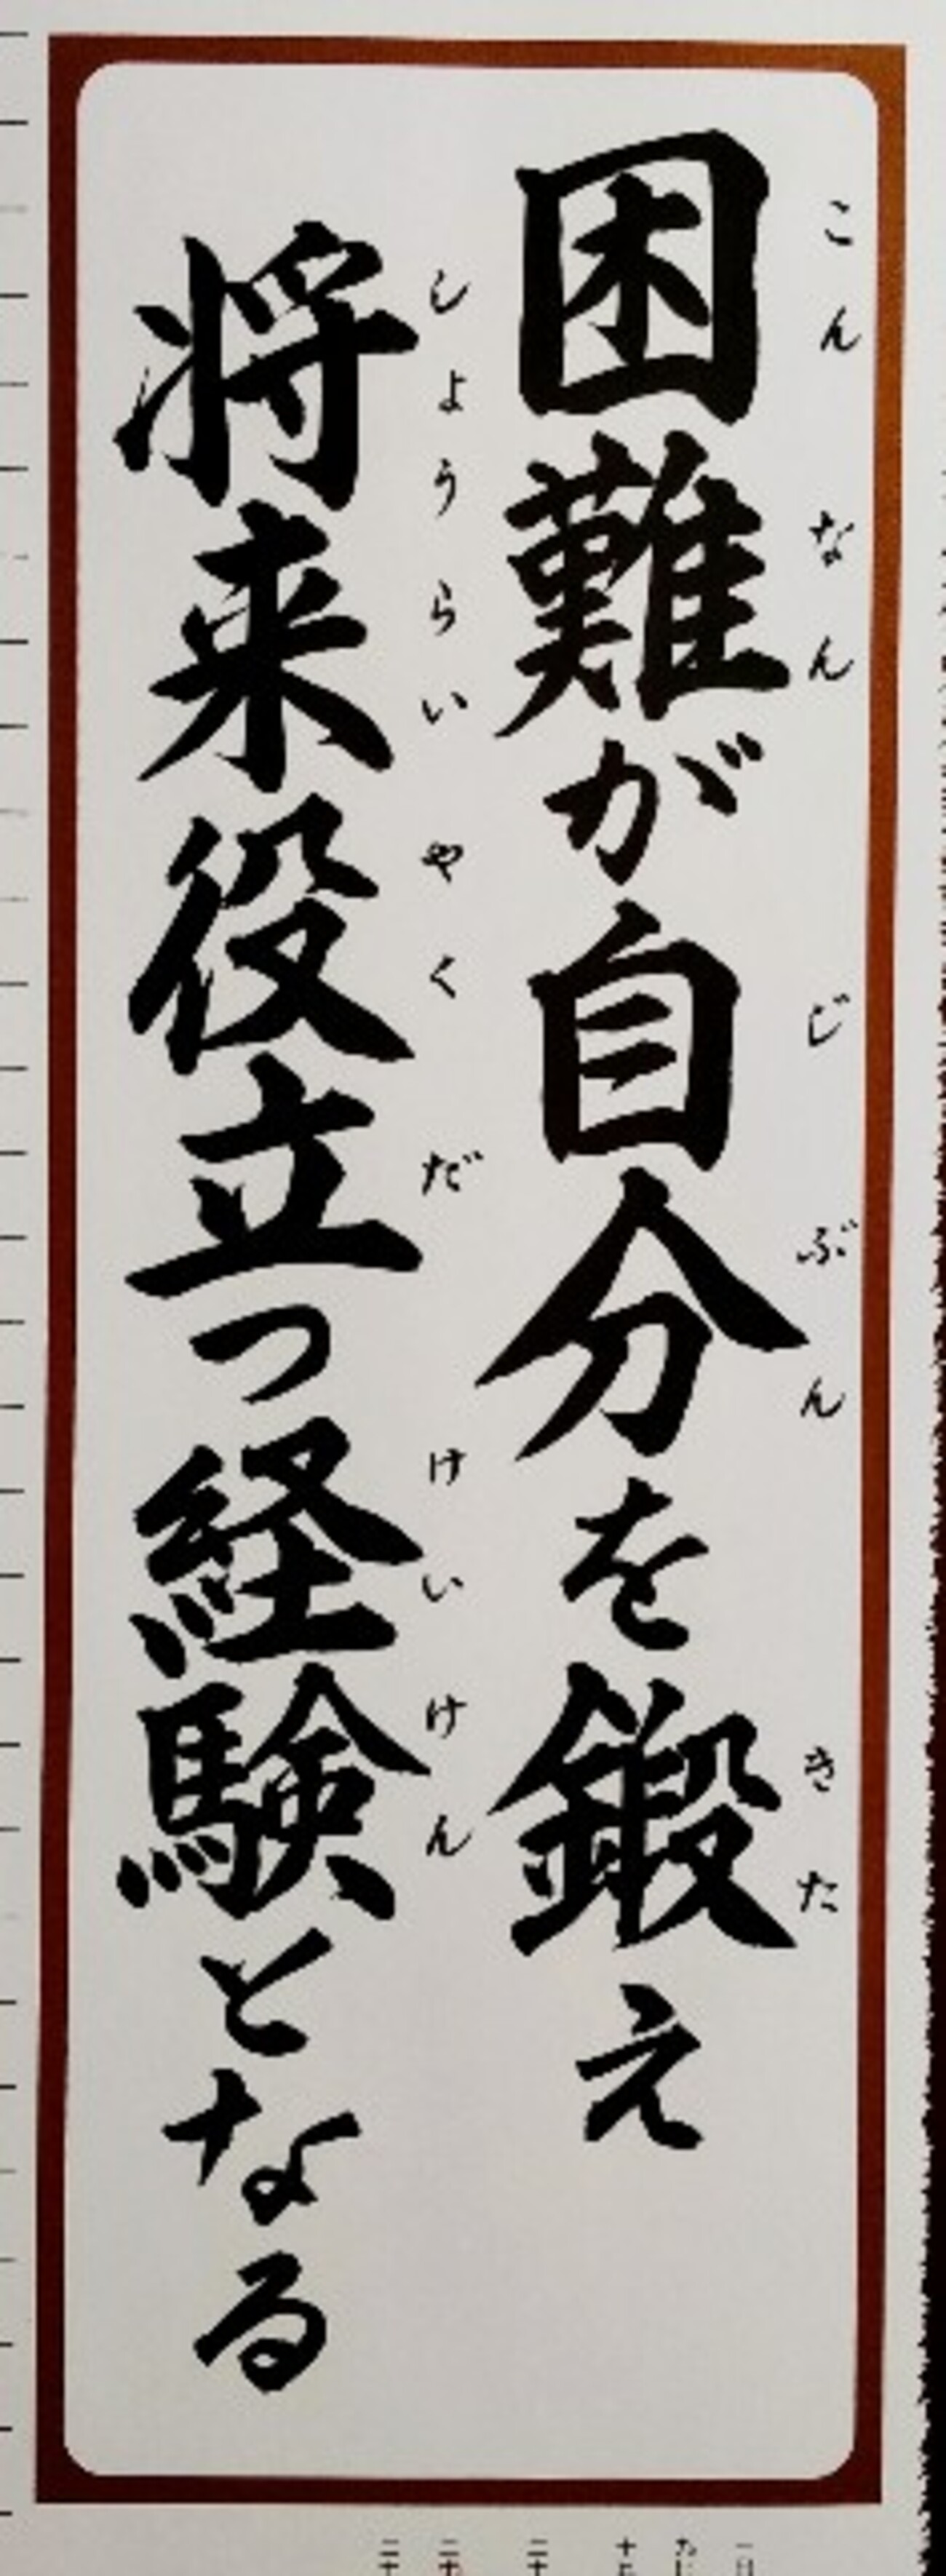 困難が自分を鍛え
こんなんじぶんきた
将来役立つ経験となる
しょうらいやくだけいけん